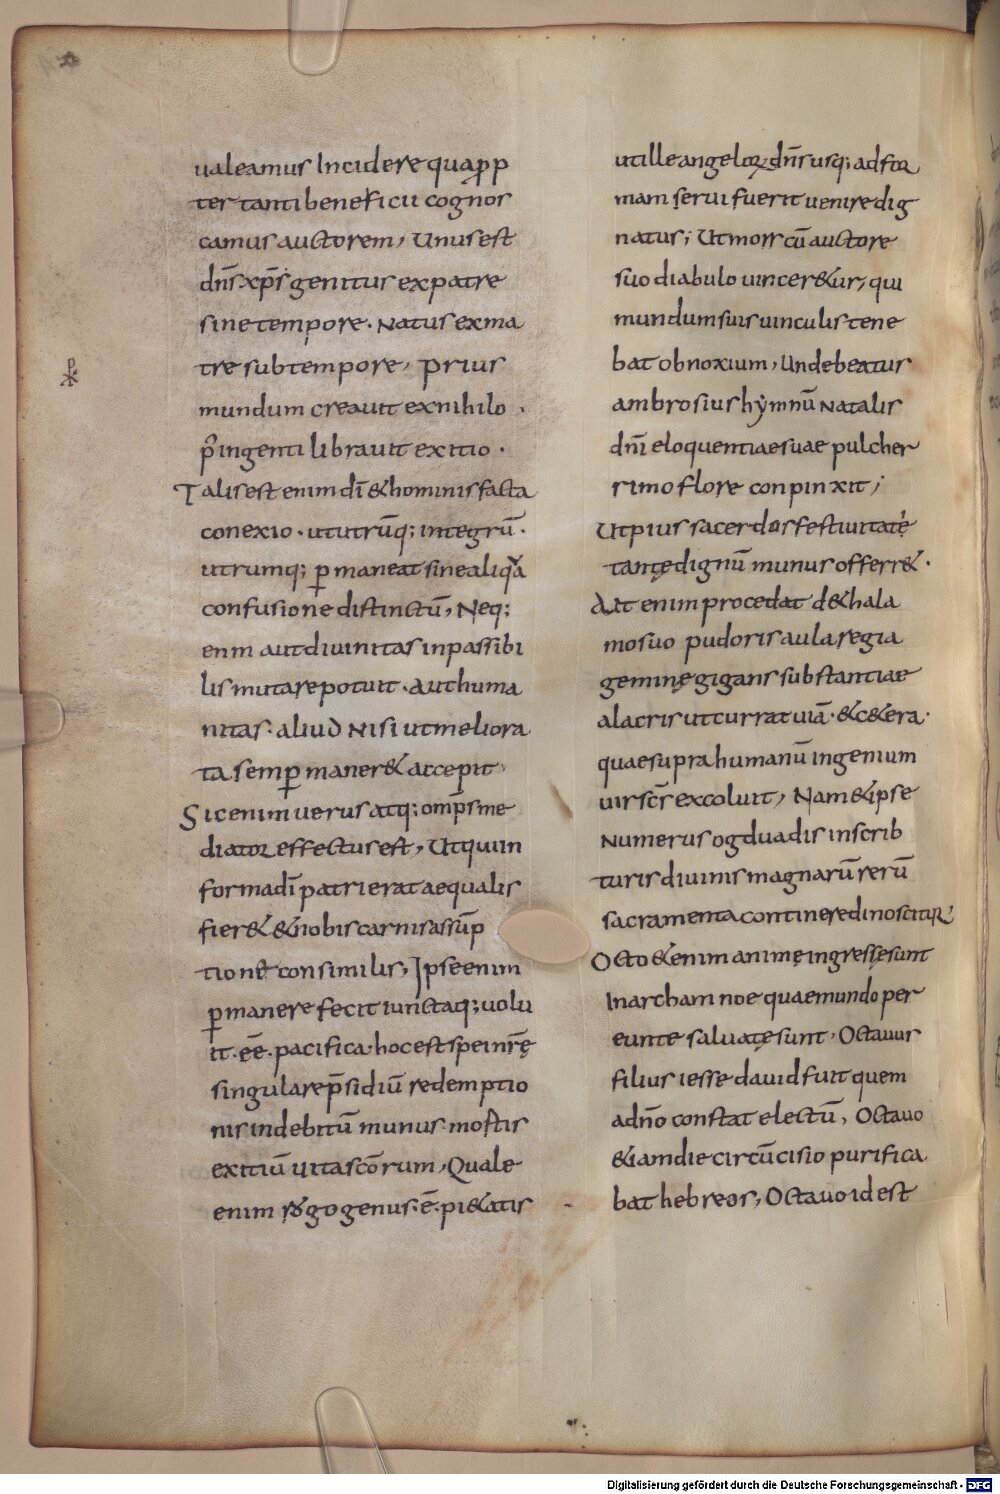 ualeamus Incidere quaꝓp
ter tanti beneficii cognos
camus auctorem, Unus est
dn̄s xp̄s genitus ex patre
sine tempore. Natus ex ma
tre sub tempore, Prius
mundum creauit ex nihilo,
p̄ ingenti librauit exitio.
Talis est enim dī & hominis facta
conexio. ut utrūq; integrū.
utrumq; ꝑmaneat sine aliq̄a
confusione distinctū, Neq;
enm aut diuinitas inpassibi
lis mutare potuit. Aut huma
nitas. aliud Nisi ut meliora
ta semꝑ maner& accepit.
Sic enim uerus atq; omp̄s me
diator effectus est, Ut qui in
forma dī patri erat aequalis
fier& & nobis carnis assūp
tione consimilis, Ipse enim
ꝑmanere fecit iunctaq; uolu
it. eē. pacifica. hoc est spei nr̄ę
singulare p̄sidiū redemptio
nis indebitū munus. mostis
exitiū uita scōrum, Quale
enim rogo genus. ē. pi&atis
ut ille angelorꝝ dn̄s usq; ad for
mam serui fuerit uenire dig
natus; Ut mors cū auctore
suo diabulo uincer&ur, qui
mundum suis uinculis tene
bat obnoxium, Unde beatus
ambrosius hẏmnū Natalis
dn̄i eloquentiae suae pulcher
rimo flore conpinxit;
Ut pius sacerdos festiuitatę
tantę dignū munus offerr&.
Ait enim procedat de &hala
mo suo pudoris aula regia
geminę gigans substantiae
alacris ut currat uiā. &c&era.
quae supra humanū ingenium
uir sc̄s excoluit, Nam & ipse
Numerus ogduadis in scrib
turis diuinis magnarū rerū
sacramenta continere dinoscitur
Octo &enim animę ingressę sunt
In archam noe quae mundo per
eunte saluatę sunt, Octauus
filius iesse dauid fuit quem
a dn̄o constat electū, Octauo
&iam die circūcisio purifica
bat hebreos, Octauo id est
Digitalisierung gefördert durch die Deutsche Forschungsgemeinschaft - DFG